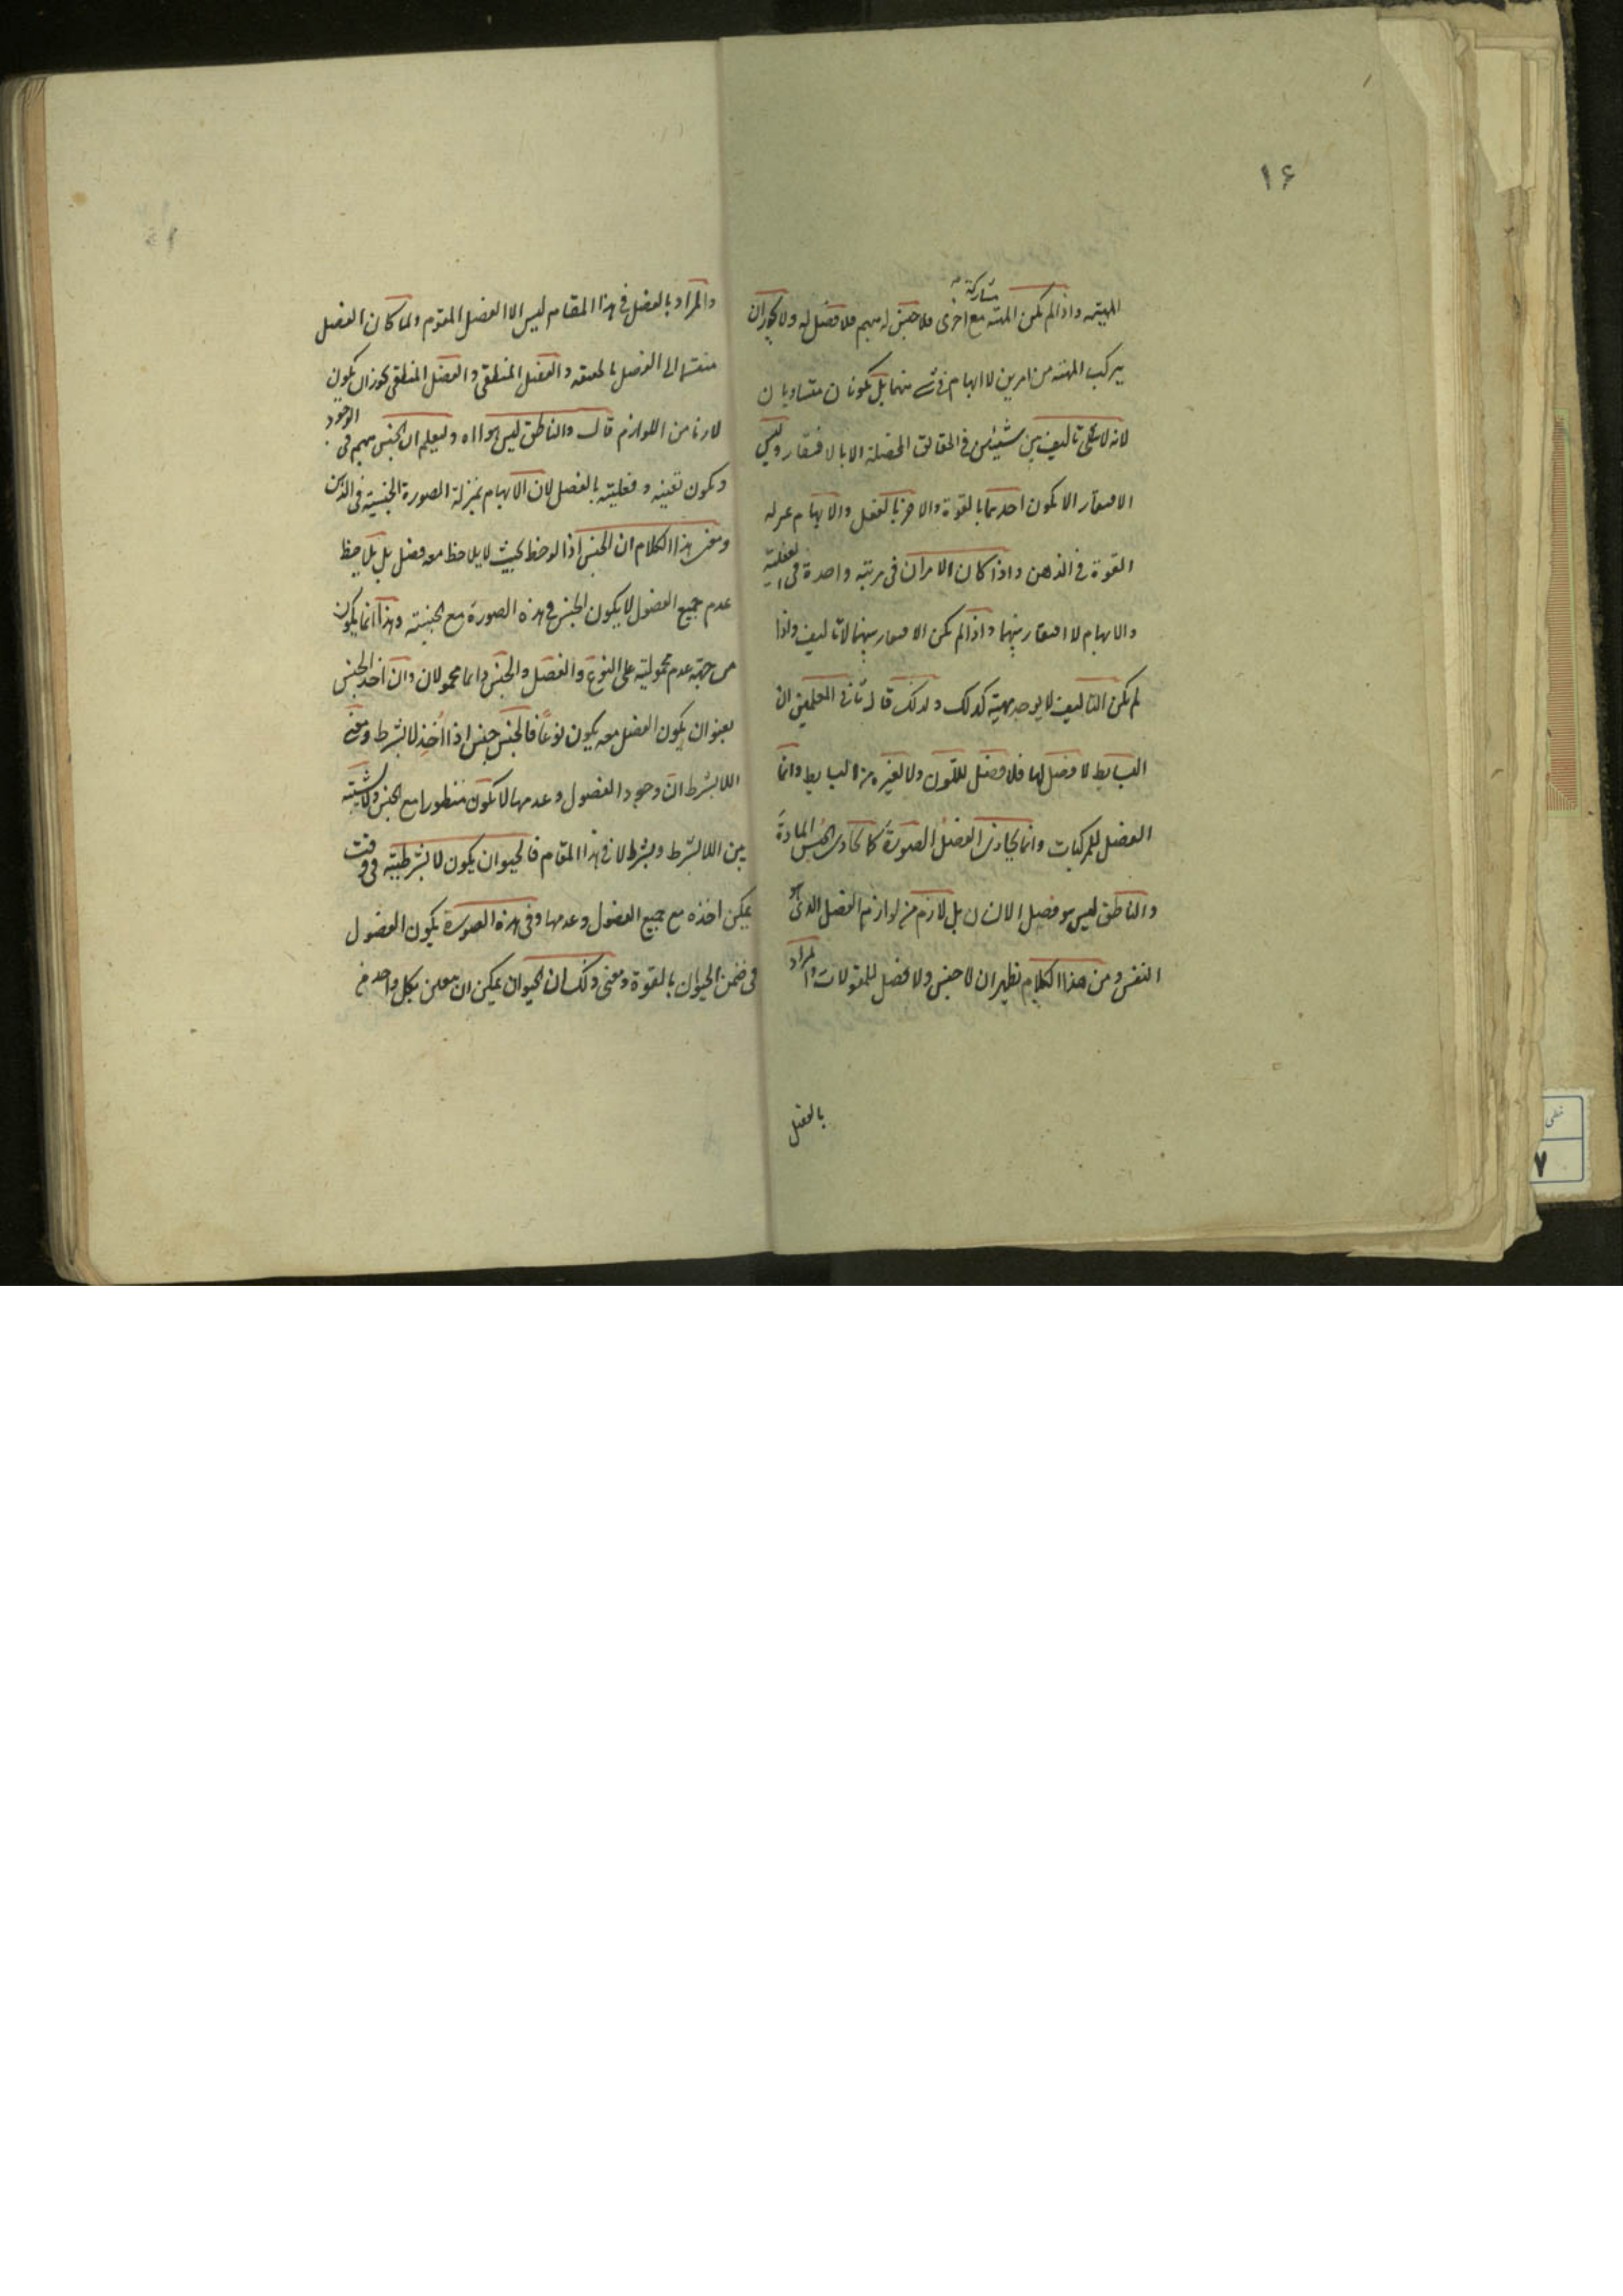 ١۶
المهیته واذا لم یکن المهیته مشارکة مع اخری فلا جنس له مبهم فلا فصل له ولا یجوز ان
یترکب المهیته من امرین لا ابهام فی شیء منهما بل یکونان متساویان
لانه لا تألیف بین شیئین فی الحقائق المحصلة الا بالافتقار ولیس
الافتقار الا یکون احدهما بالقوة والاخر بالفعل والابهام بمنزلة
القوة فی الذهن واذا کان الامران فی مرتبه واحدة فی الفعلیة
والابهام لا افتقار بینهما واذا لم یکن الافتقار بینهما لا تألیف واذا
لم یکن التألیف لا یوجد مهیة کذلک ولذلک قال ثانی المعلمین ان
البسایط لا فصل لها فلا فصل للّون ولا لغیره من البسایط وانما
الفصل للمرکبات وانما یحاذی الفصلُ الصورةَ کما یحاذی الجنس المادةَ
والناطق لیس هو فصل الانسان بل لازم من لوازم الفصل الذی هو
النفس ومن هذا الکلام یظهر ان لا جنس ولا فصل للمقولات والمراد
بالفصل
والمراد بالفصل فی هذا المقام لیس الا الفصل المقوم ولما کان الفصل
منقسما الی الفصل بالحقیقه والفصل المنطقی والفصل المنطقی یجوز ان یکون
لازما من اللوازم قال والناطق لیس هو ااه ولیعلم ان الجنس مبهم فی الوجود
ویکون تعینه وفعلیته بالفصل لان الابهام بمنزلة الصورة الجنسیة فی الذهن
ومعنی هذا الکلام ان الجنس اذا لوحظ بحیث لا یلاحظ معه فصل بل یلاحظ
عدم جمیع الفصول لا یکون الجنس فی هذه الصورة مع الجنسیته وهذا انما یکون
من جهة عدم محمولیته علی النوع والفصل والجنس دائما محمولان وان اخذ الجنس
بعنوان یکون الفصل معه یکون نوعاً فالجنس جنس اذا اُخِذ لا بشرط ومعنی
اللابشرط ان وجود الفصول وعدمها لا یکون منظورا مع الجنس ولا شبهة
بین اللابشرط وبشرط لا فی هذا المقام فالحیوان یکون لا بشرطیته فی وقت
یمکن اخذه مع جمیع الفصول وعدمها وفی هذه الصورة یکون الفصول
فی ضمن الحیوان بالقوة ومعنی ذلک ان الحیوان یمکن ان یتعین بکل واحد من